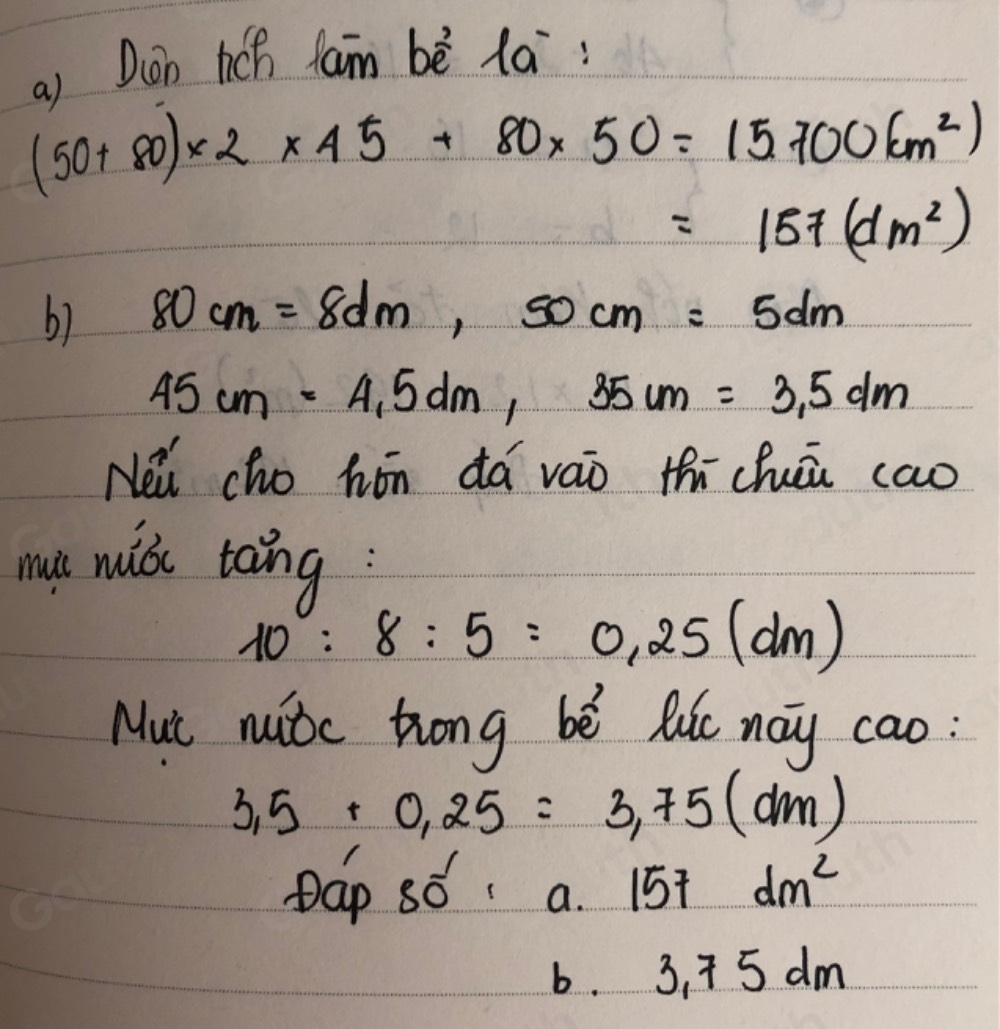 a) Diện tích làm bể là :
(50+ 80)×2 × 45 + 80× 50 = 15700 (cm²)
= 157 (dm²)
b) 80 cm = 8dm , 50 cm = 5dm
45 cm = 4,5 dm , 35 cm = 3,5 dm
Nếu cho hòn đá vào thì chiều cao
mực nước tăng :
10 : 8 : 5 = 0,25 (dm)
Mực nước trong bể lúc này cao :
3,5 + 0,25 = 3,75 (dm)
Đáp số : a. 157 dm²
b. 3,75 dm